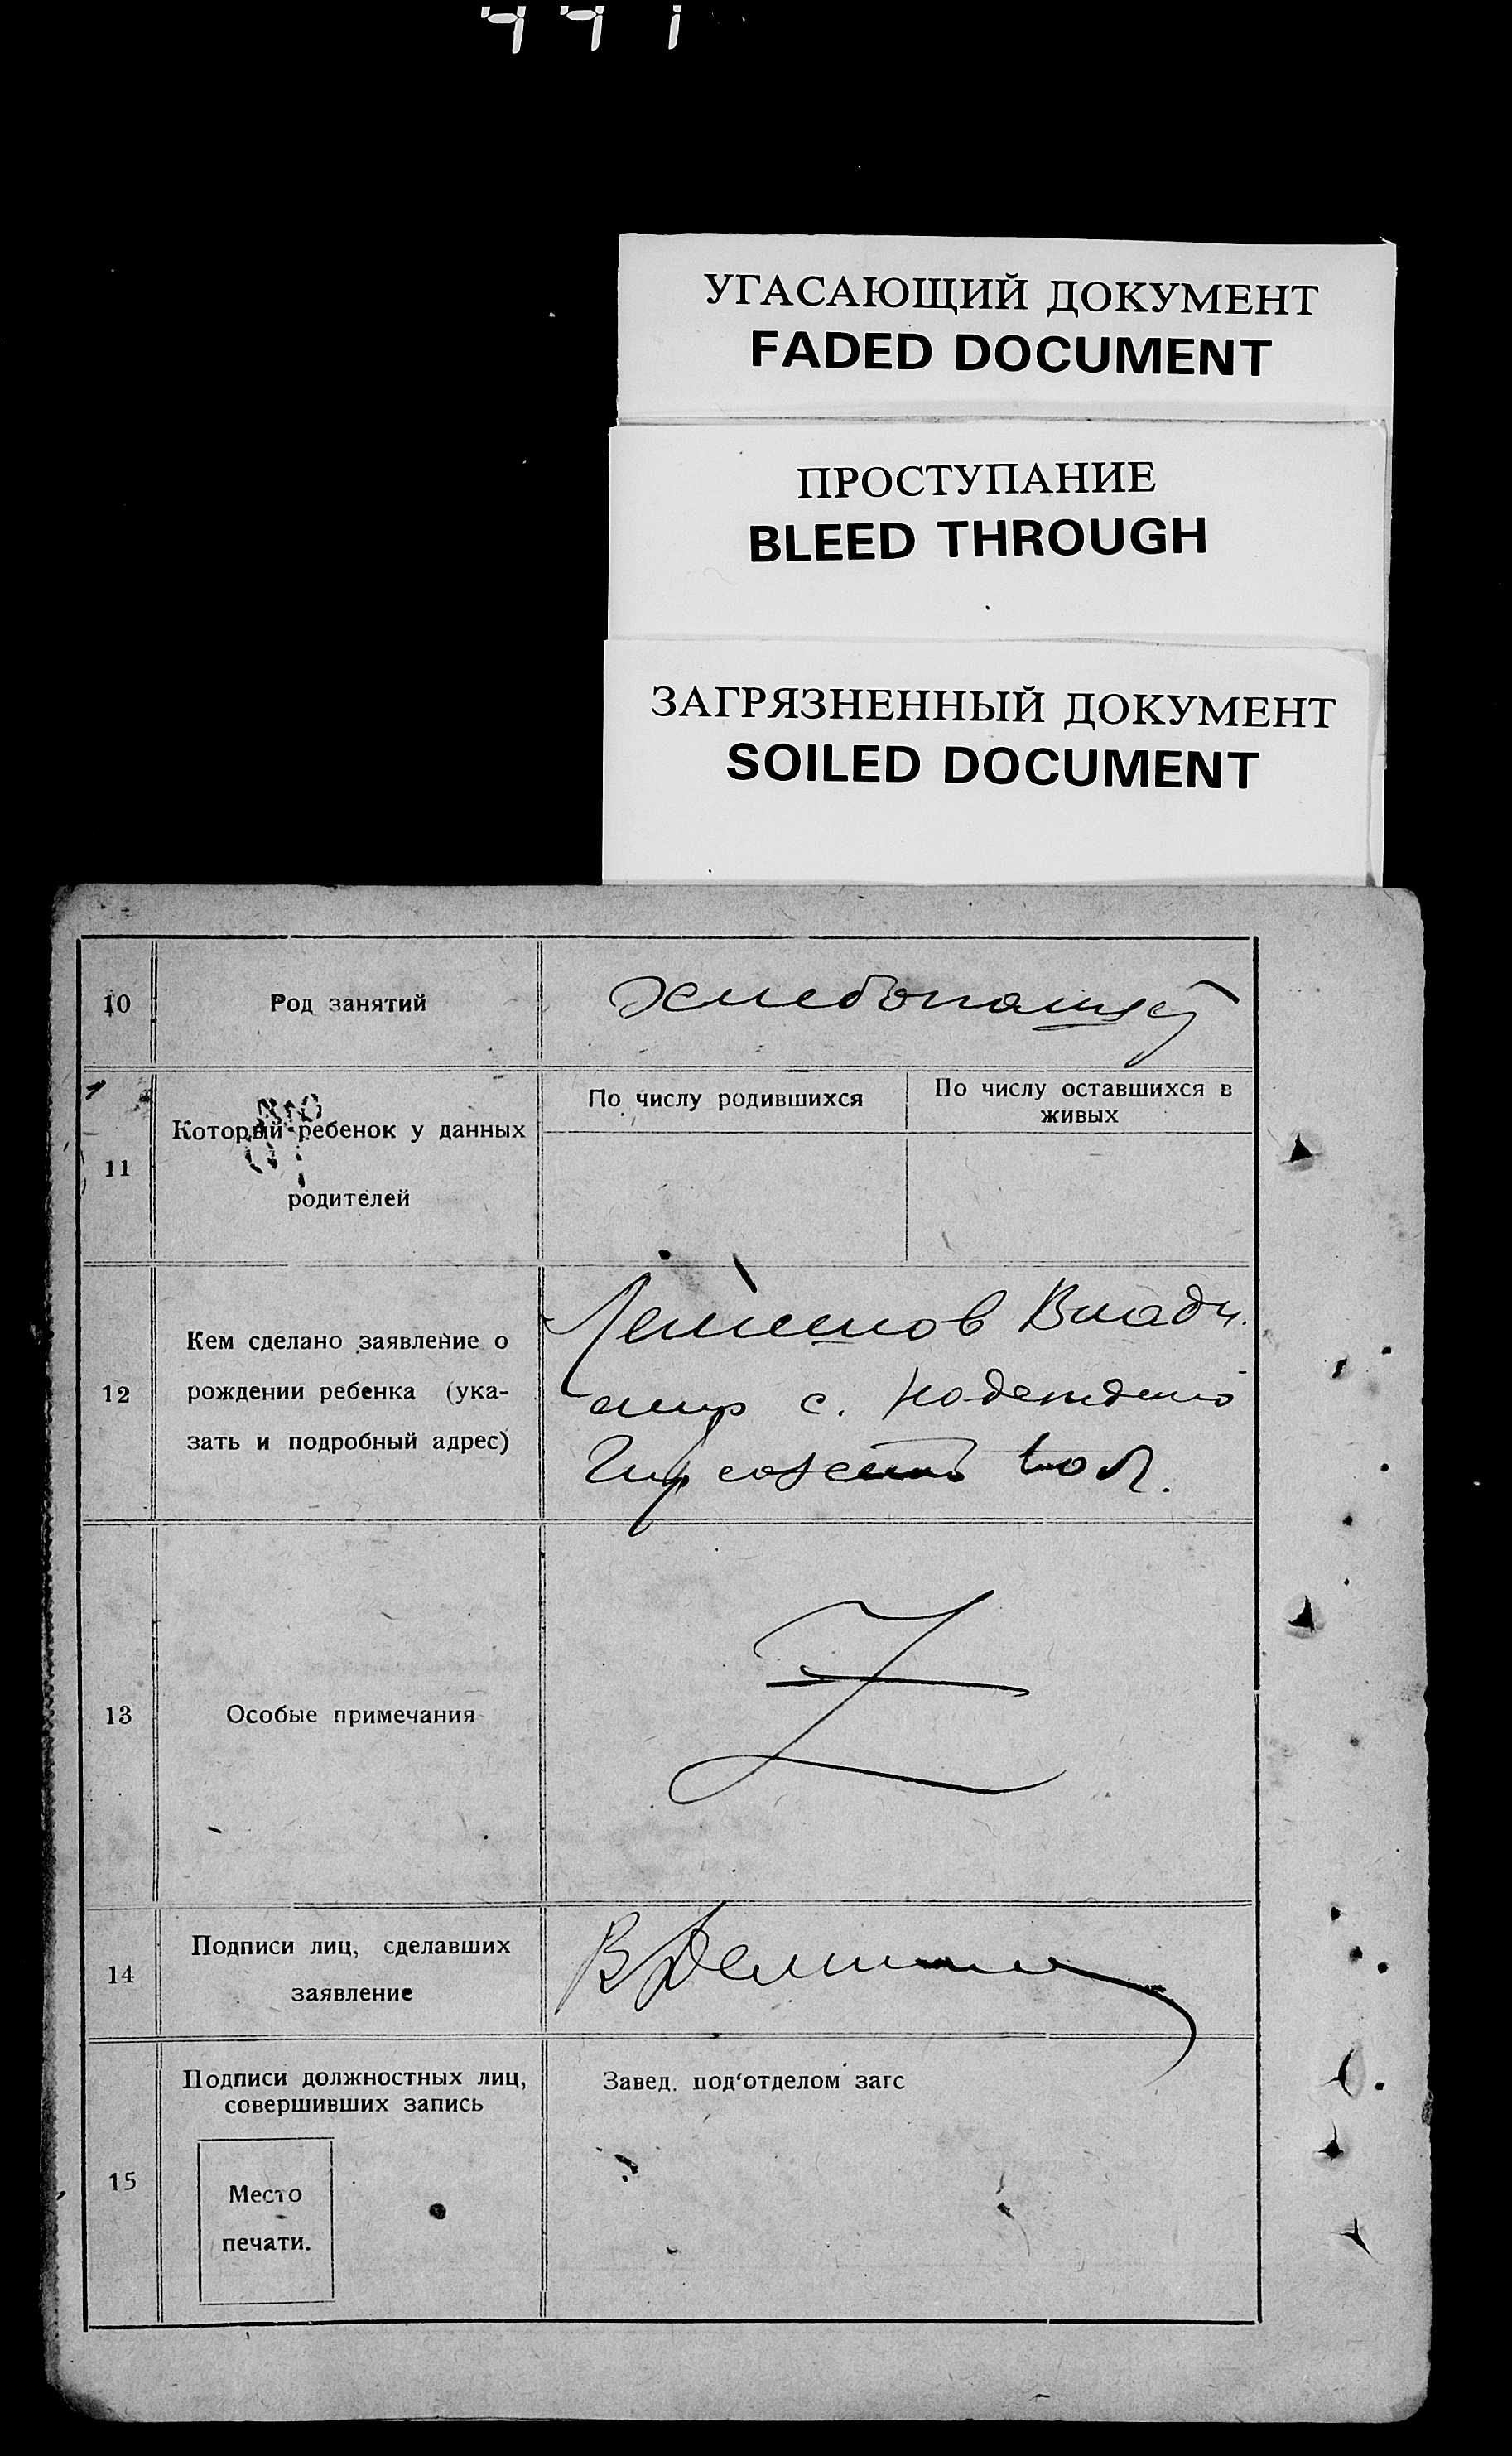 441
УГАСАЮЩИЙ ДОКУМЕНТ
FADED DOCUMENT
ПРОСТУПАНИЕ
BLEED THROUGH
ЗАГРЯЗНЕННЫЙ ДОКУМЕНТ
SOILED DOCUMENT
10
Род занятий
хлебопашец
11
Который ребенок у данных
родителей
По числу родившихся
По числу оставшихся в
живых
12
Кем сделано заявление о
рождении ребенка (ука-
зать и подробный адрес)
Влади.
с. Надеждино
вол.
13
Особые примечания
Z
14
Подписи лиц, сделавших
заявление
15
Подписи должностных лиц,
совершивших запись
Место
печати.
Завед. под‘отделом загс